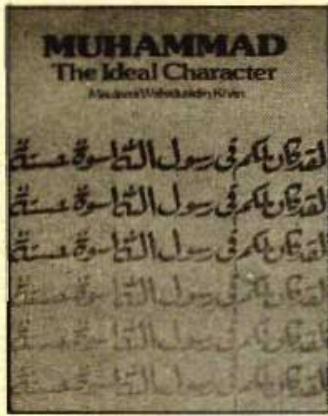 MUHAMMAD
The Ideal Character
Maulana Wahiduddin Khan
لقد كان لكم في رسول الله اسوة حسنة
لقد كان لكم في رسول الله اسوة حسنة
لقد كان لكم في رسول الله اسوة حسنة
لقد كان لكم في رسول الله اسوة حسنة
لقد كان لكم في رسول الله اسوة حسنة
لقد كان لكم في رسول الله اسوة حسنة